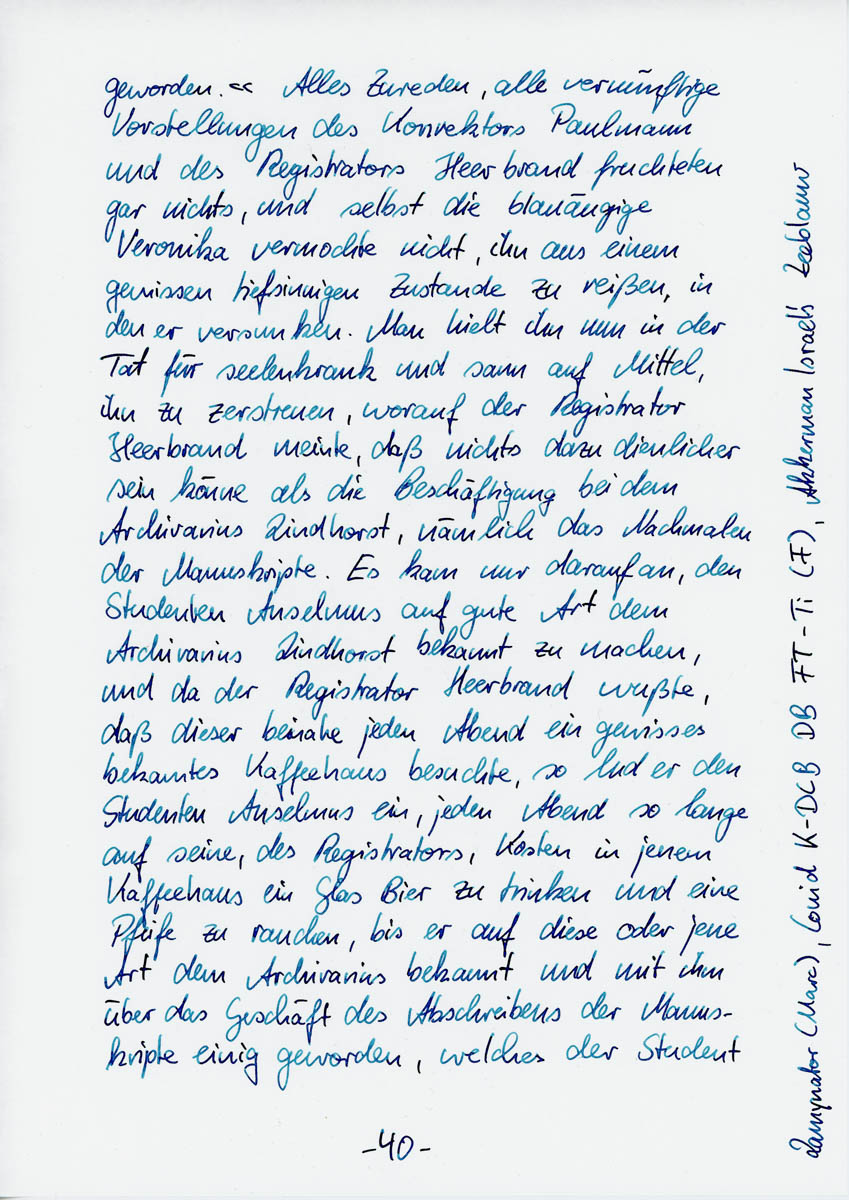 geworden.« Alles Zureden, alle vernünftige
Vorstellungen des Konrektors Paulmann
und des Registrators Heerbrand fruchteten
gar nichts, und selbst die blauäugige
Veronika vermochte nicht, ihn aus einem
gewissen tiefsinnigen Zustande zu reißen, in
den er versunken. Man hielt ihn nun in der
Tat für seelenkrank und sann auf Mittel,
ihn zu zerstreuen, worauf der Registrator
Heerbrand meinte, daß nichts dazu dienlicher
sein könne als die Beschäftigung bei dem
Archivarius Lindhorst, nämlich das Nachmalen
der Manuskripte. Es kam nur darauf an, den
Studenten Anselmus auf gute Art dem
Archivarius Lindhorst bekannt zu machen,
und da der Registrator Heerbrand wußte,
daß dieser beinahe jeden Abend ein gewisses
bekanntes Kaffeehaus besuchte, so lud er den
Studenten Anselmus ein, jeden Abend so lange
auf seine, des Registrators, Kosten in jenem
Kaffeehaus ein Glas Bier zu trinken und eine
Pfeife zu rauchen, bis er auf diese oder jene
Art dem Archivarius bekannt und mit ihm
über das Geschäft des Abschreibens der Manus-
kripte einig geworden, welches der Student
-40-
(Marc), Conid K-DCB DB FT-Ti (F), Akkerman